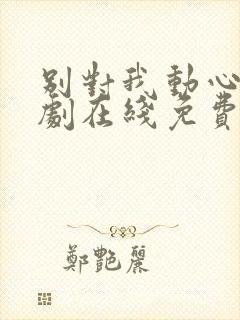 别對我動心
劇在綫免費
鄭艷麗